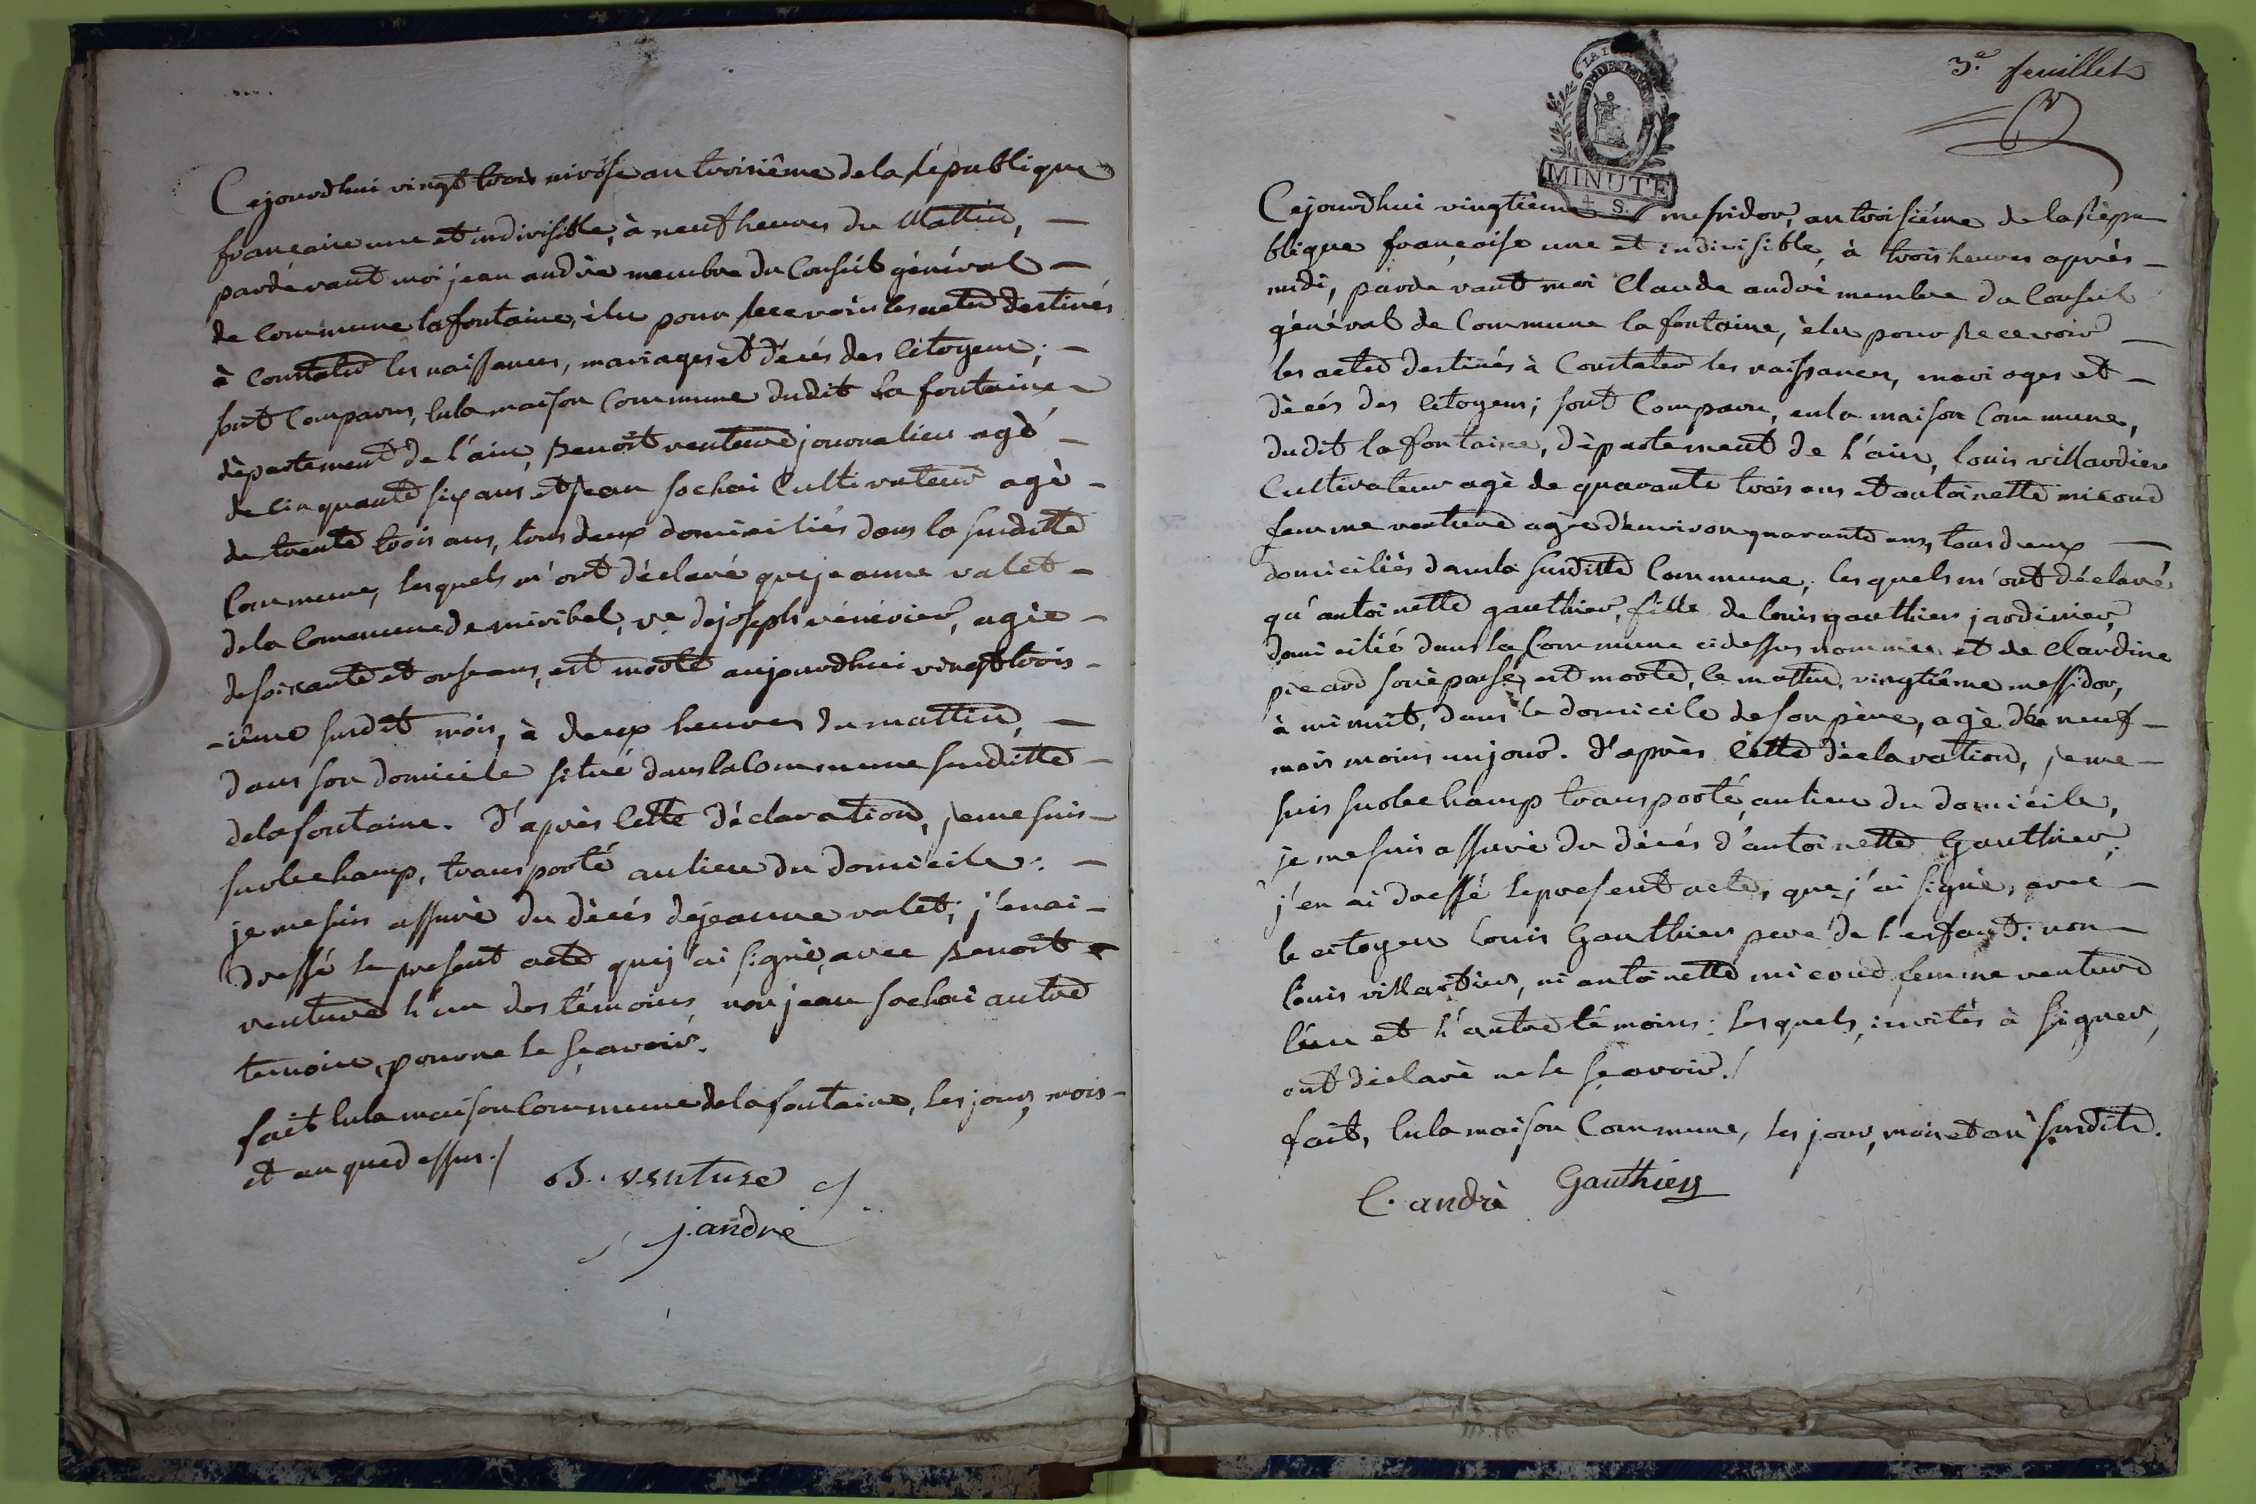 Cejourdhui vingt trois nivôse an troisiême de la république
francaise une et indivisible, à neuf heures du Mattin, —
pardevant moi jean andré membre du Conseil général —
de Commune lafontaine, élu pour recevoir les actes destinés
à Constater les naissances, mariages et décés des Citoyens; —
sont Comparus, en la maison Commune dudit La fontaine
département de l'ain, Benoît venture journalier agé —
de cinquante six ans et jean sochai Cultivateur agé —
de trente trois ans, tous deux domiciliés dans la susditte
Commune, lesquels m'ont déclaré que jeanne valet —
de la Commune de miribel, ve de joseph vénévier, agée —
de soixante et onse ans, est morte aujourdhui vingt trois —
-ieme susdit mois, à deux heures du mattin, —
dans son domicile situé dans la Commune susditte —
de lafontaine. D'après Cette déclaration, je me suis —
sur le champ, transporté au lieu du domicile: —
je me suis assuré du décés de jeanne valet; j'en ai —
dressé le present acte que j'ai signé, avec Benoît
venture l'un des témoins, non jean sochai autre
temoin, pour ne le sçavoir.
fait en la maison Commune de la fontaine, les jour, mois —
et an que dessus./
B. venture
j. andré
3.e feuillet
LA LOI
MINUTE
S.
Cejourdhui vingtième messidor, an troisiéme de la Répu
blique françoise une et indivisible, à trois heures après —
midi, pardevant moi Claude andré membre du Conseil
général de Commune la fontaine, élu pour Recevoir —
les actes destinés à Constater les naissances, mariages et —
décés des Citoyens; sont Comparu, en la maison Commune,
dudit lafontaine, département de l'ain, louis villardier
Cultivateur agé de quarante trois ans et antoinette micoud
femme venture agée d'environ quarante ans, tous deux —
domiciliés dans la susditte Commune; lesquels m'ont déclaré
qu'antoinette gauthier, fille de louis gauthier jardinier,
domicilié dans la Commune cidessus nommée et de Claudine
picard son épouse, est morte, le mattin vingtiême messidor,
à minuit, dans le domicile de son père, agé de neuf —
mois moins un jour. D'après Cette déclaration, je me —
suis sur le champ transporté au lieu du domicile,
je me suis assuré du décés d'antoinette Gauthier;
j'en ai dressé le present acte, que j'ai signé, avec —
le citoyen louis Gauthier pere de l'enfant: non —
louis villardier, ni antoinette micoud femme venture
l'un et l'autre témoins: lesquels, invités à signer,
ont déclaré ne le sçavoir./
fait, en la maison Commune, les jour, mois et an susdits.
C. andré Gauthier